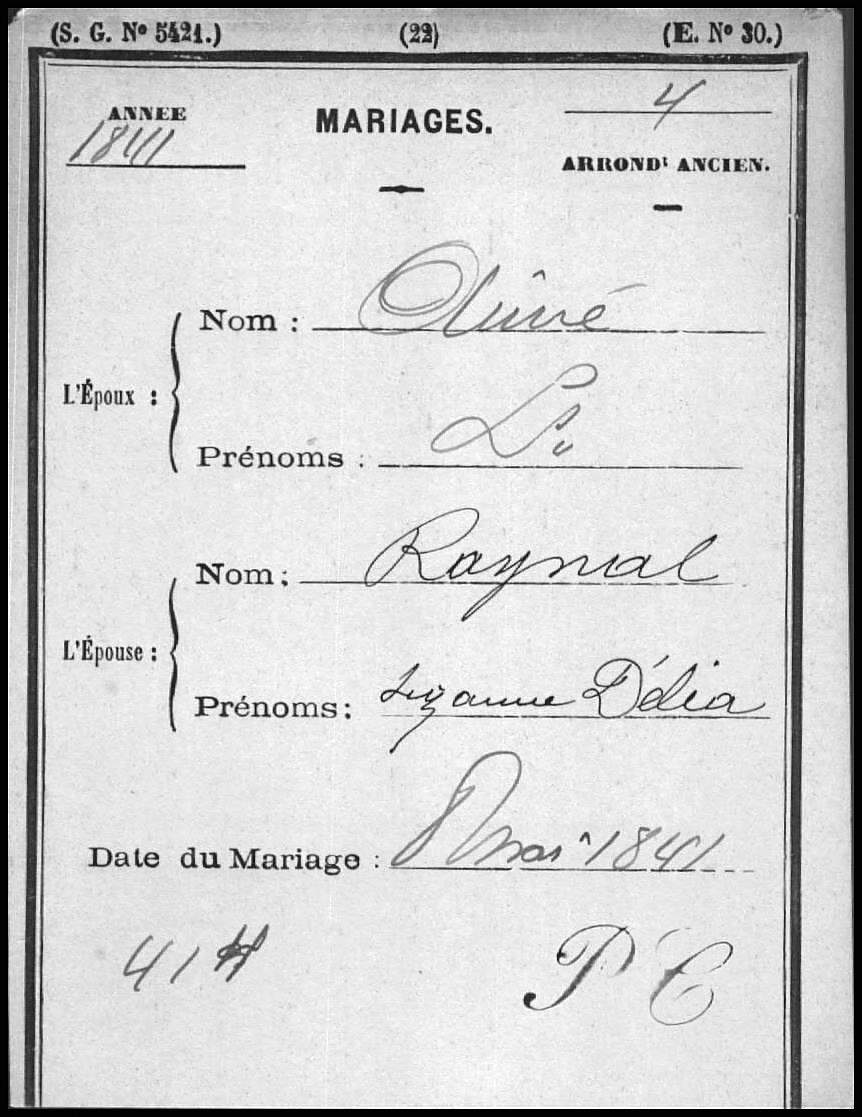 (S. G. Nº 5421.) (22) (E. Nº 30.)
ANNEE MARIAGES. 4
1841 ARRONDt ANCIEN.
L'Époux :
Nom :
Prénoms : Ls
L'Épouse :
Nom : Raynal
Prénoms : Suzanne Délia
Date du Mariage : 8 mai 1841
41 P C